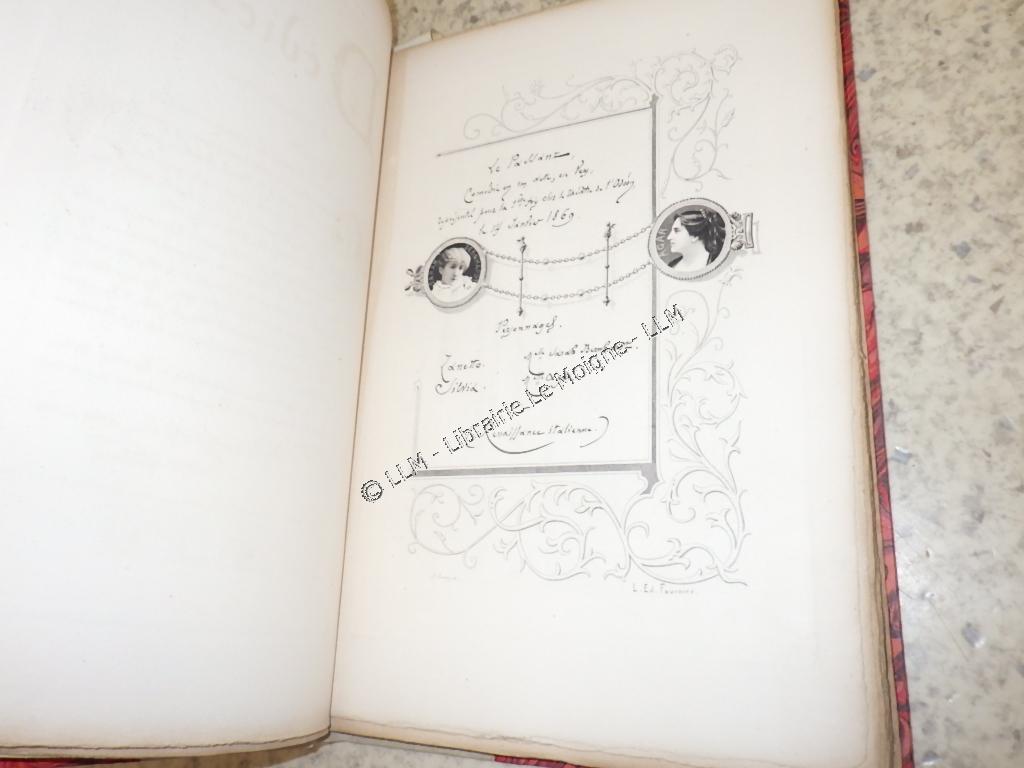 Le Passant,
Comédie en un acte, en vers,
représentée pour la 1ère fois chez le théâtre de l'Odéon
le 14 Janvier 1869
GAR
Personnages.
Zanetto. Mlle Sarah
Silvia.
(Renaissance italienne)
© LLM - Librairie Le Moigne - LLM
L. Ed. Fournier.